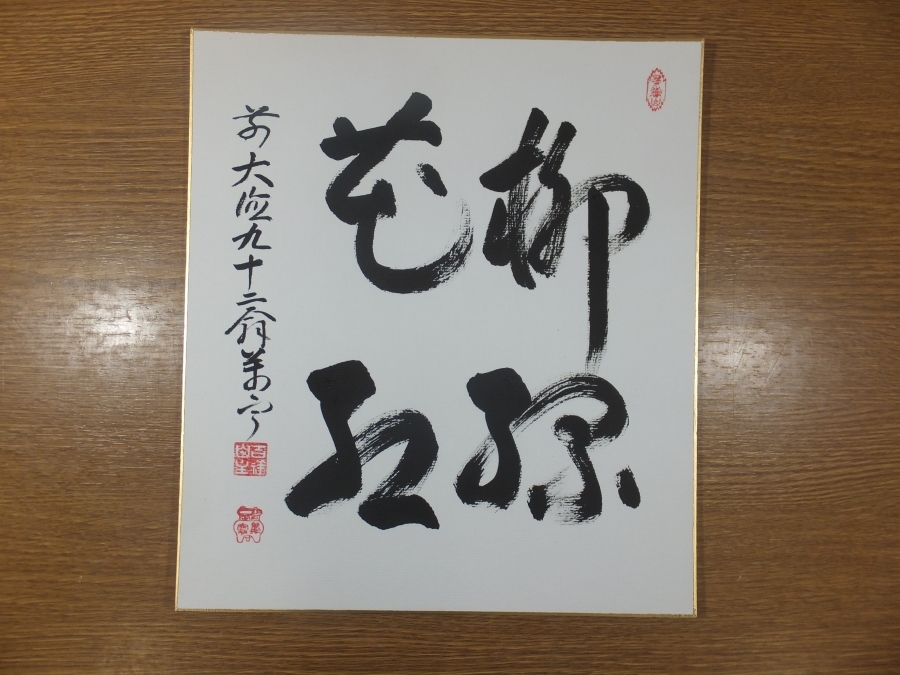 柳緑
花紅
前大徳九十二翁萬寧